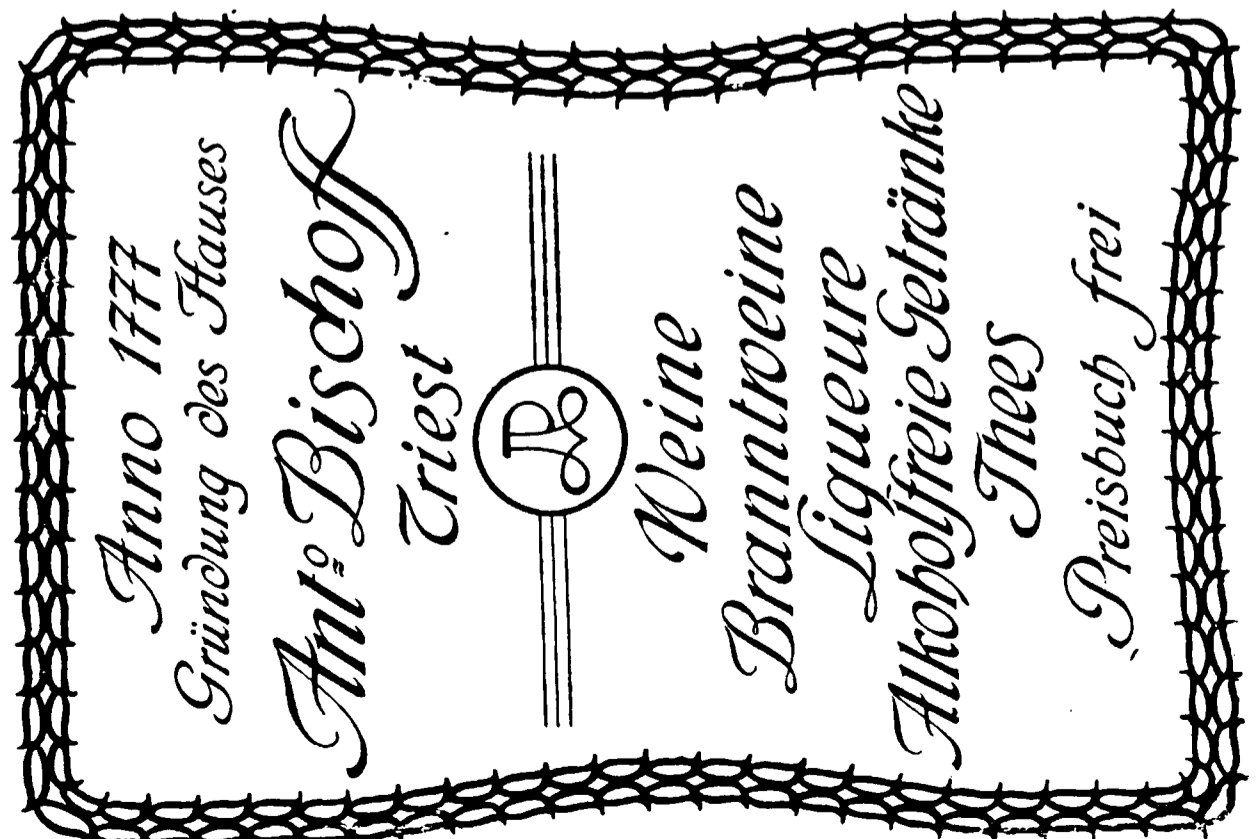 Anno 1777
Gründung des Hauses
Antº Bischoff
Triest
Weine
Branntweine
Liqueure
Alkoholfreie Getränke
Thees
Preisbuch frei